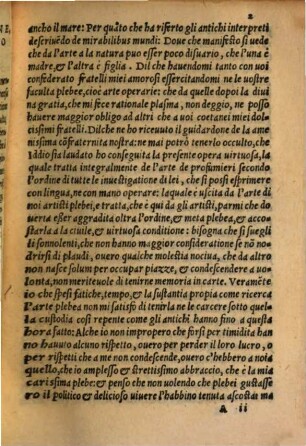 2
ancho il mare: Per quãto che ha riferto gli antichi interpreti
de scriuẽdo de mirabilibus mundi: Doue che manifesto si uede
che da l'arte a la natura puo esser poco disuario, che l'una è
madre, & l'altra è figlia. Dil che hauendomi tanto con uoi
confederato fratelli miei amorosi essercitandomi ne le uostre
faculta plebee, cioè arte operarie: che da quelle dopoi la diui
na gratia, che mi fece rationale plasma, non deggio, ne posso
hauere maggior obligo ad altri che a uoi coetanei miei dol-
cissimi fratelli. Dilche ne ho riceuuto il guidardone de la ame
nissima cõfraternita nostra: ne mai potrò tenerlo occulto, che
Iddio sia laudato ho conseguita la presente opera uirtuosa, la
quale tratta integralmente de l'arte de profumieri secondo
l'ordine di tutte le inuestigatione di lei, che si posi esprimere
con lingua, e con mano operare: laquale è uscita da l'arte di
noi artisti plebei, e tratta, che è qui da gli artisti, parmi che do
ueria esser aggradita oltra l'ordine, & meta plebea, & acco-
starla a la ciuile, & uirtuosa conditione: bisogna che si suegli
li sonnolenti, che non hanno maggior consideratione se nõ no-
drirsi di plaudi, ouero qualche molestia nociua, che da altro
non nasce solum per occupar piazze, & condescendere a uo-
lonta, non meriteuole di tenerne memoria in carte. Veramẽte
io che spesi fatiche, tempo, & la sustantia propia come ricerca
l'arte plebea non mi satisfo di tenirla ne le carcere sotto quel-
la custodia cosi repente come gli antichi hanno fino a questa
hora fatto: Alche io non impropero che forsi per timidita han
no hauuto alcuno rispetto, ouero per perder il loro lucro, o
per rispetti che a me non condescende, ouero c'hebbero a noia
quello, che io amplesso & strettissimo abbraccio, che è la mia
carissima plebe: & penso che non uolendo che plebei gustasse
ro il politico & delicioso uiuere l'habbino tenuta ascosta: ma
A ii